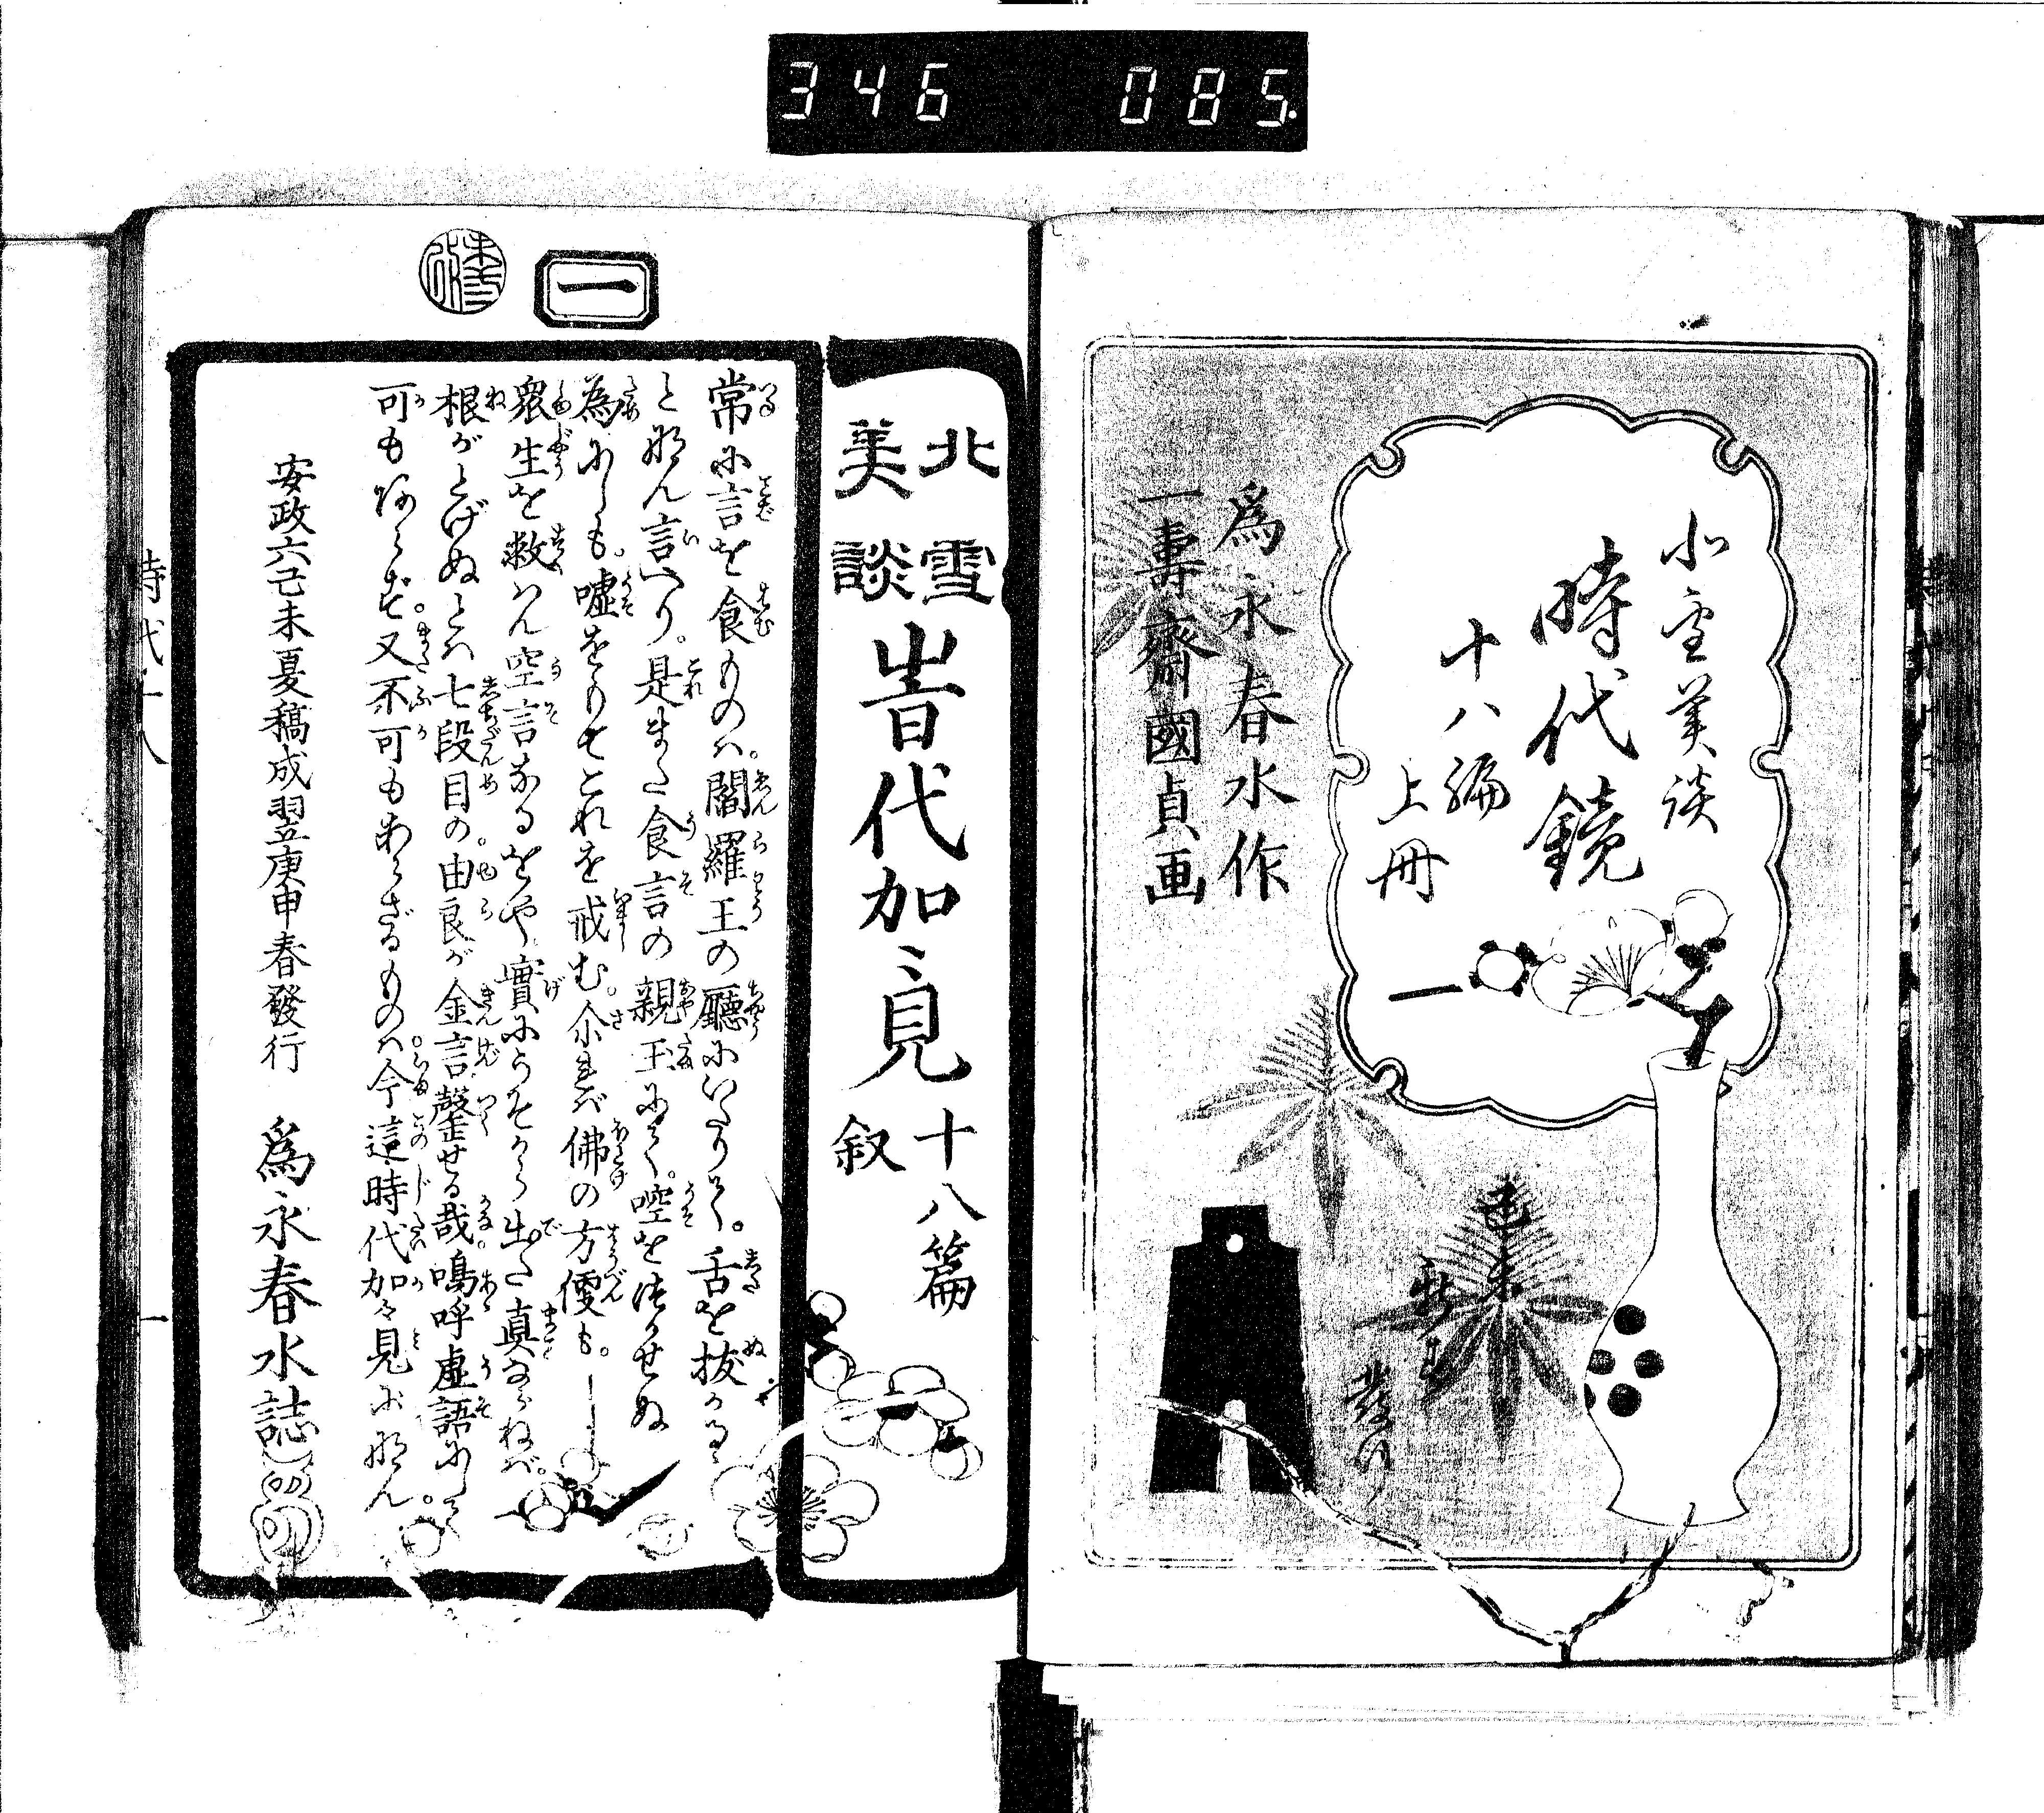 346 085
北雪美談
時代鏡
十八編
上冊
爲永春水作
一壽齋國貞画
北雪
美談
峕代加ゞ見
十八篇
叙
一
常に言を食ものハ。閻羅王の廳にいたりて。舌を拔かるゝ
と那ん言へり。是また食言の親玉にて。啌を吐かせぬ
為にしも。嘘をもてこれを戒む。尒れバ佛の方便も。
衆生を救ハん空言なるをや。實にうそから出た真ならねバ。
根がとげぬとハ七段目の。由良が金言罄せる哉。嗚呼虚語にして。
可もなく。又不可もあらざるものハ。今這時代加々見に那ん。
安政六己未夏稿成翌庚申春發行
爲永春水誌
時代十八
一